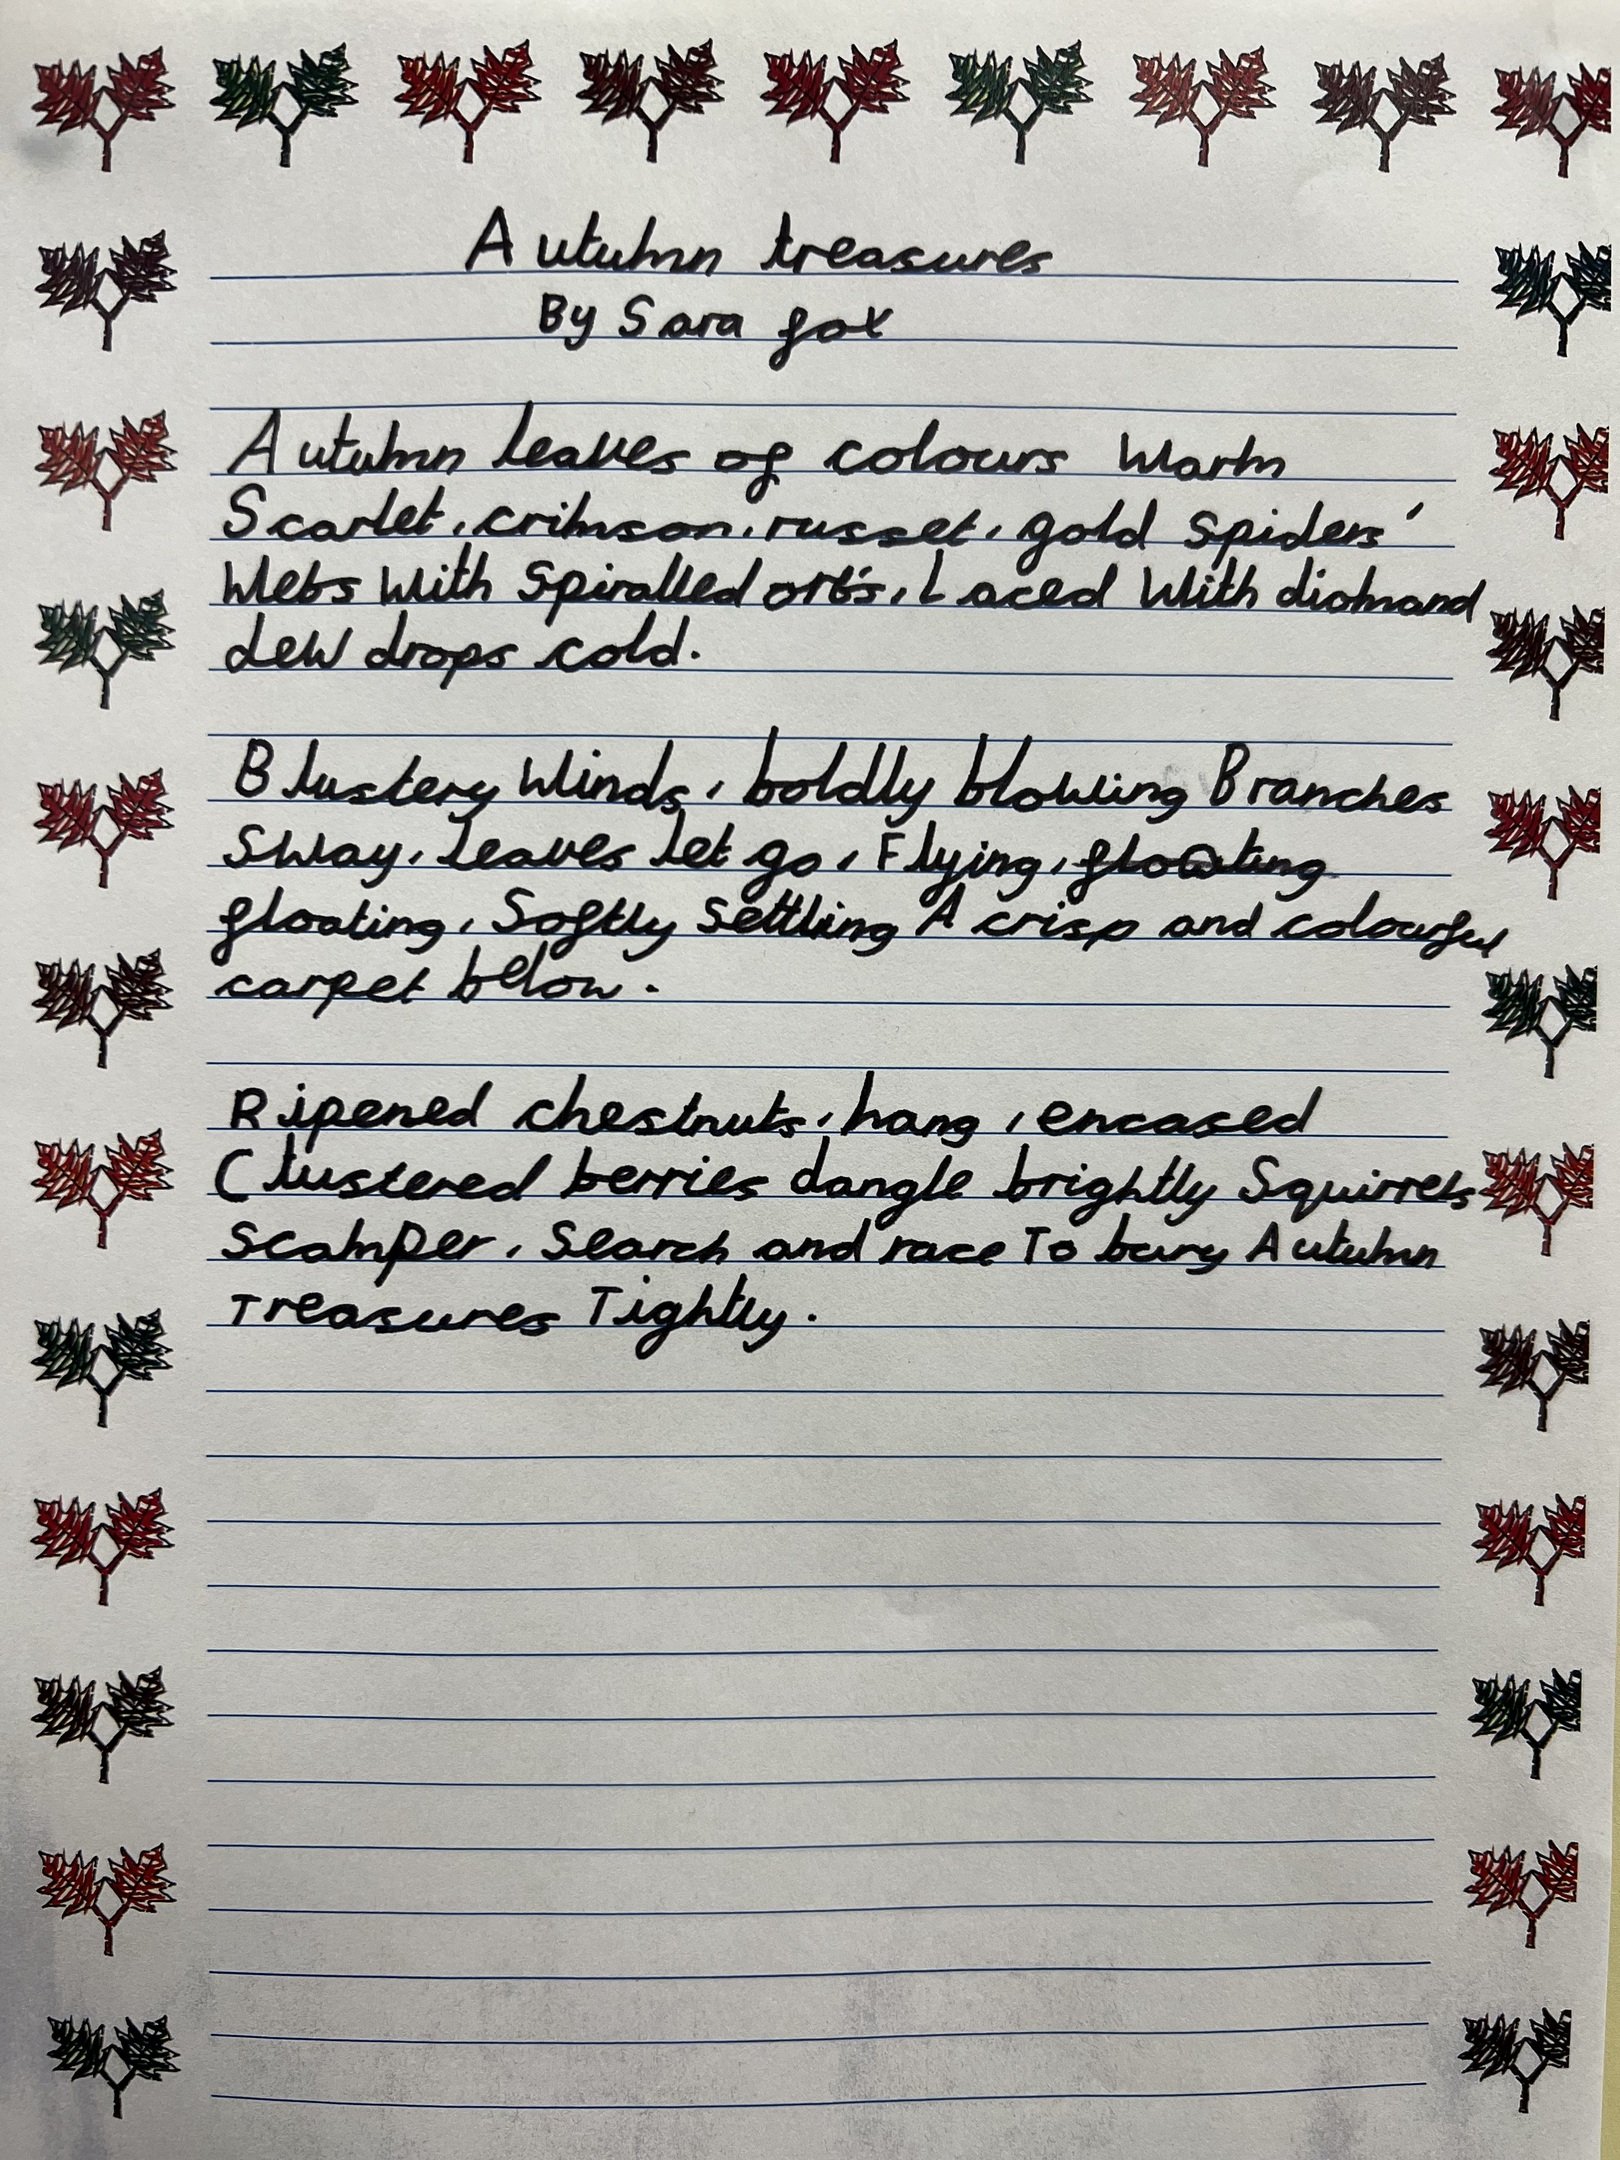 Autumn treasures
By Sara fox
Autumn leaves of colours warm
Scarlet, crimson, russet, gold Spiders'
Webs with Spiralled orb's, Laced With diamand
dew drops cold.
Blustery winds, boldly blowing Branches
Sway, leaves let go, Flying, floating
floating, Softly Settling A crisp and colourful
carpet below.
Ripened chestnuts, hang, encased
Clustered berries dangle brightly Squirrels
Scamper, Search and race To bury Autumn
Treasures Tightly.